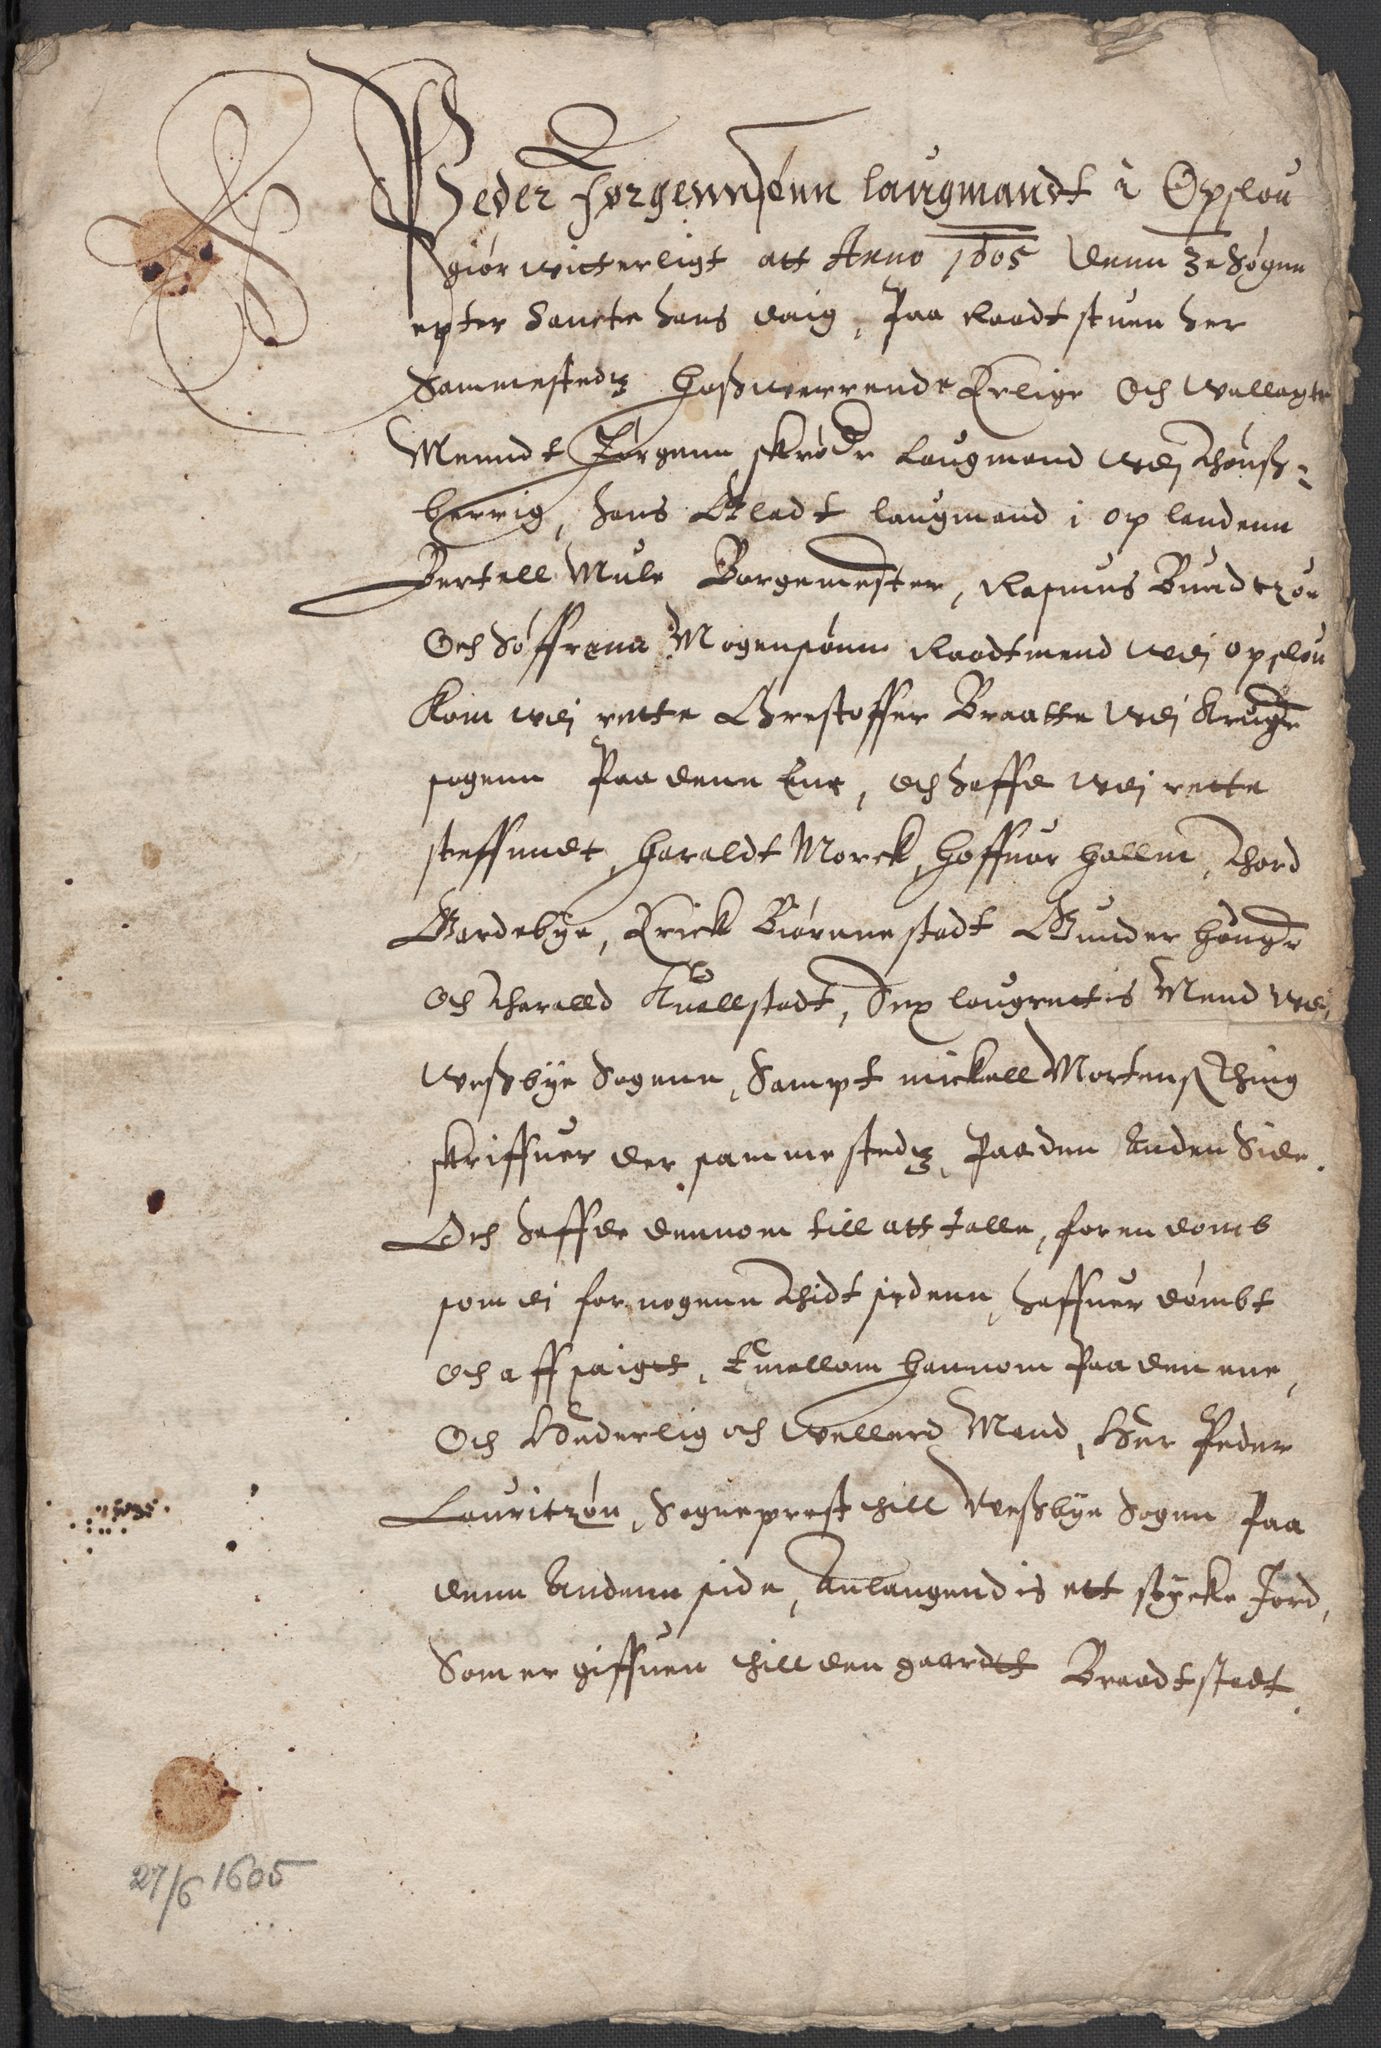 Peder Jørgennsønn laugmandt i Opslou
giør witterligt att Anno 1605 denn 3e Søgne
epter Sancte Hans daig, Paa Raadt stuen her
Sammestedtz Hoßwerrende Erlige Och Wellagte
Menndt Jørgenn skrøder Laugmand wdj Thønsß-
berrig, Hans Gladt laugmand i oplandenn
Bertell Mule Borgemester, Rasmus Bundtzøn
Och Søffrenn Mogensønn Raadtmend wdj opslou
Kom wdj rette Christoffer Braatte wdj
sogenn Paa denn Ene, och haffde wdj rette
steffnndt, Haraldt Morck, Hoffuor Hollm, Thord
Gardebye, Erick Biørnnestadt Gunder
Och Haralld Kuellstadt, Sex laugrettis Mend wdj
Weßbye Sogenn, Sampt mickell Mortenß Thing
skriffuer der sammestedtz, Paa den Anden Side.
Och haffde dennom till att talle, for en domb
som di for nogenn Thidt sidenn, haffuer dømbt
och aff saigtt, Emellom hannom Paa den ene,
Och Hederlig och Wellerd Mand, Her Peder
Lauritzøn, Sogneprest thill Weßbye Sogen Paa
denn Andenn side, Anlangendis ett støcke Jord,
Som er giffuen thill den gaardtt Braadtstadt.
27/6 1605